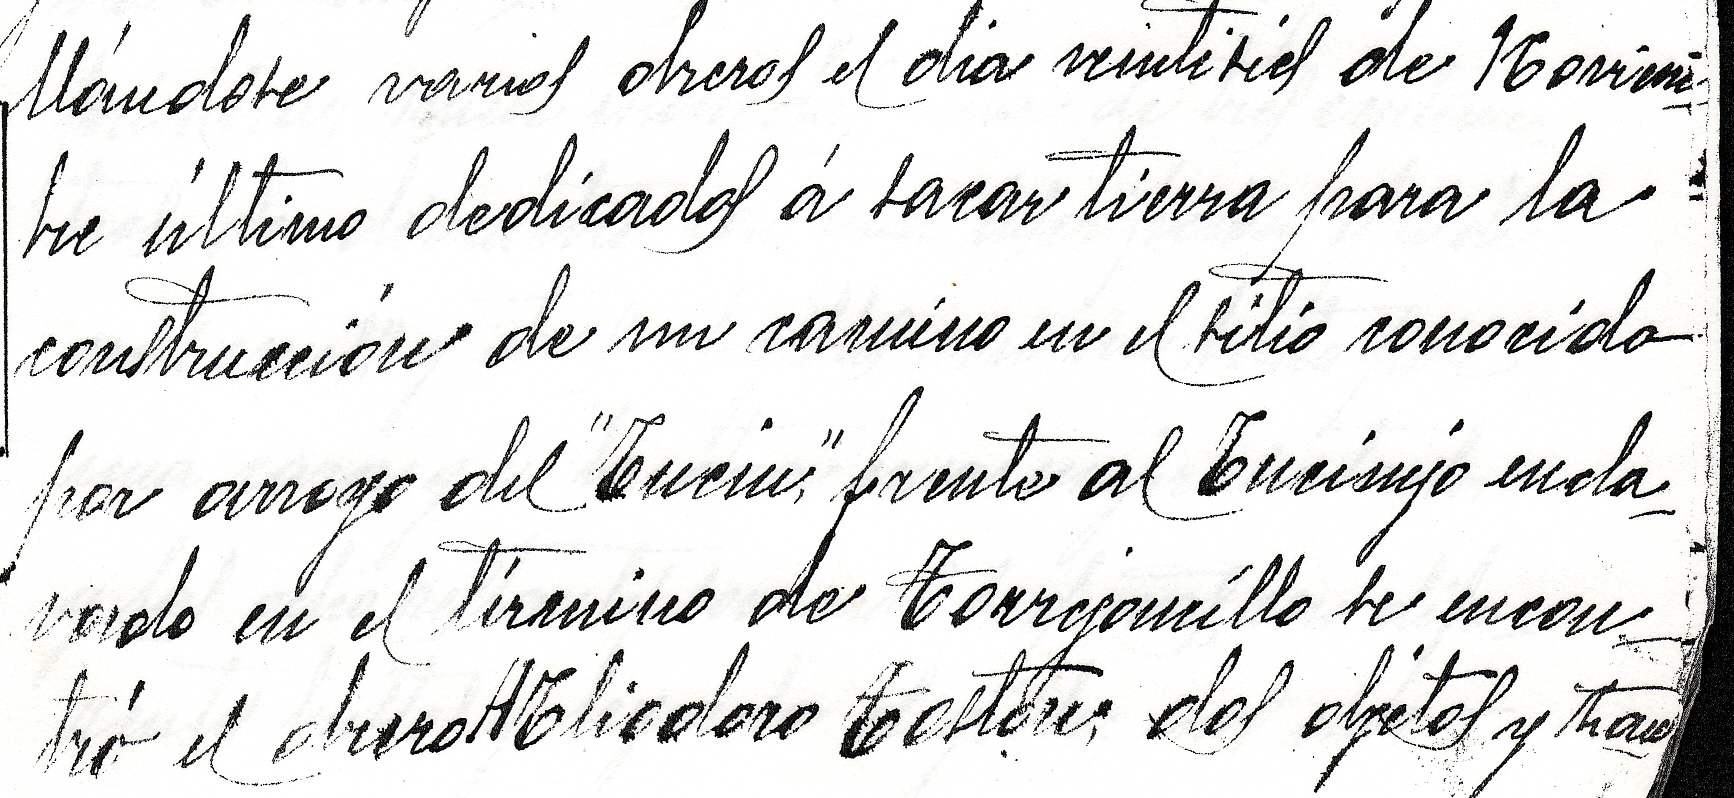 llándose varios obreros el dia veintiseis de Noviem-
bre último dedicados á sacar tierra para la
construcción de un camino en el sitio conocido
por arroyo del "Encin," frente al Encinejo encla-
vado en el término de Torrejoncillo se encon-
tró el obrero Eliodoro dos objetos y trans